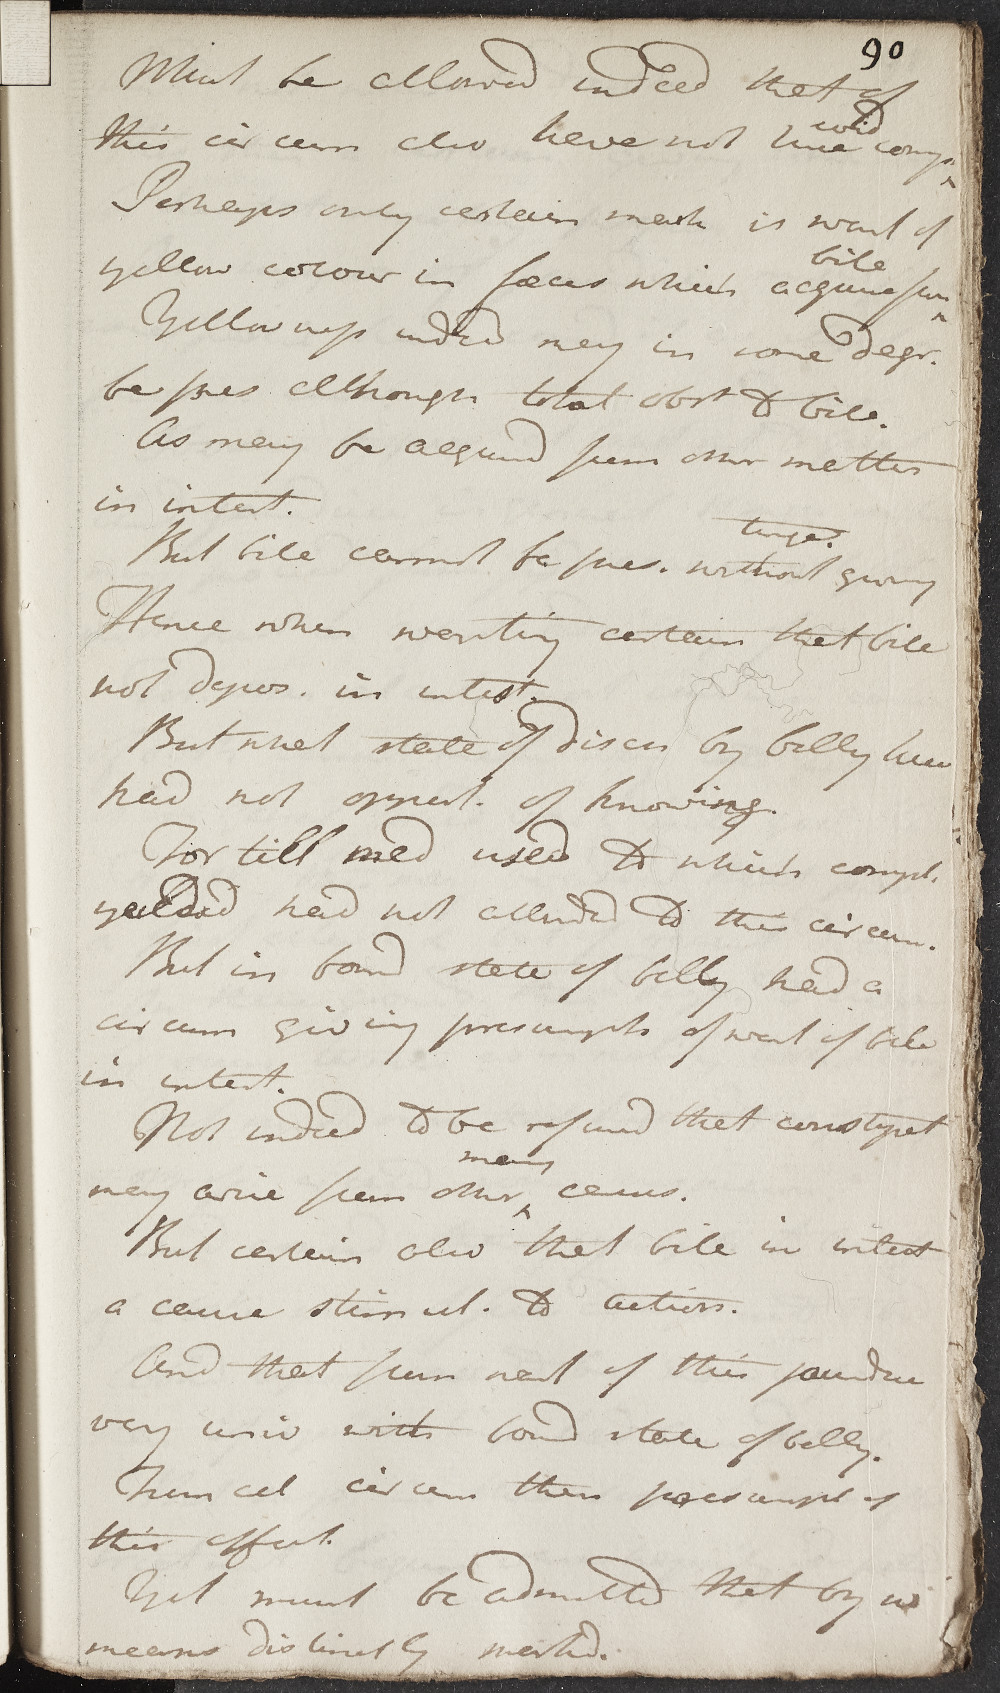 90
Must be allowed indeed that of
this circum also have not here cold comp.
Perhaps only certain mark is want of
yellow colour in fæces which acquire from bile
Yellowness indeed may in some degr.
be pres although total obst to bile.
As may be acquired from other matters
in intest.
But bile cannot be pres. without giving tinge.
Hence when wanting certain that bile
not depos. in intest.
But what state of disch by belly here
had not opport. of knowing.
For till med used to which compl.
yielded had not attended to this circum.
But in bound state of belly had a
circum giving presumpt of want of bile
in intest.
Not indeed to be refused that constipat
may arise from other many causes.
But certain also that bile in intest
a cause stimul. to action.
And that from want of this
very univ with bound state of belly.
From al circum then presumpt of
this effect.
Yet must be admitted that by no
means distinctly marked.